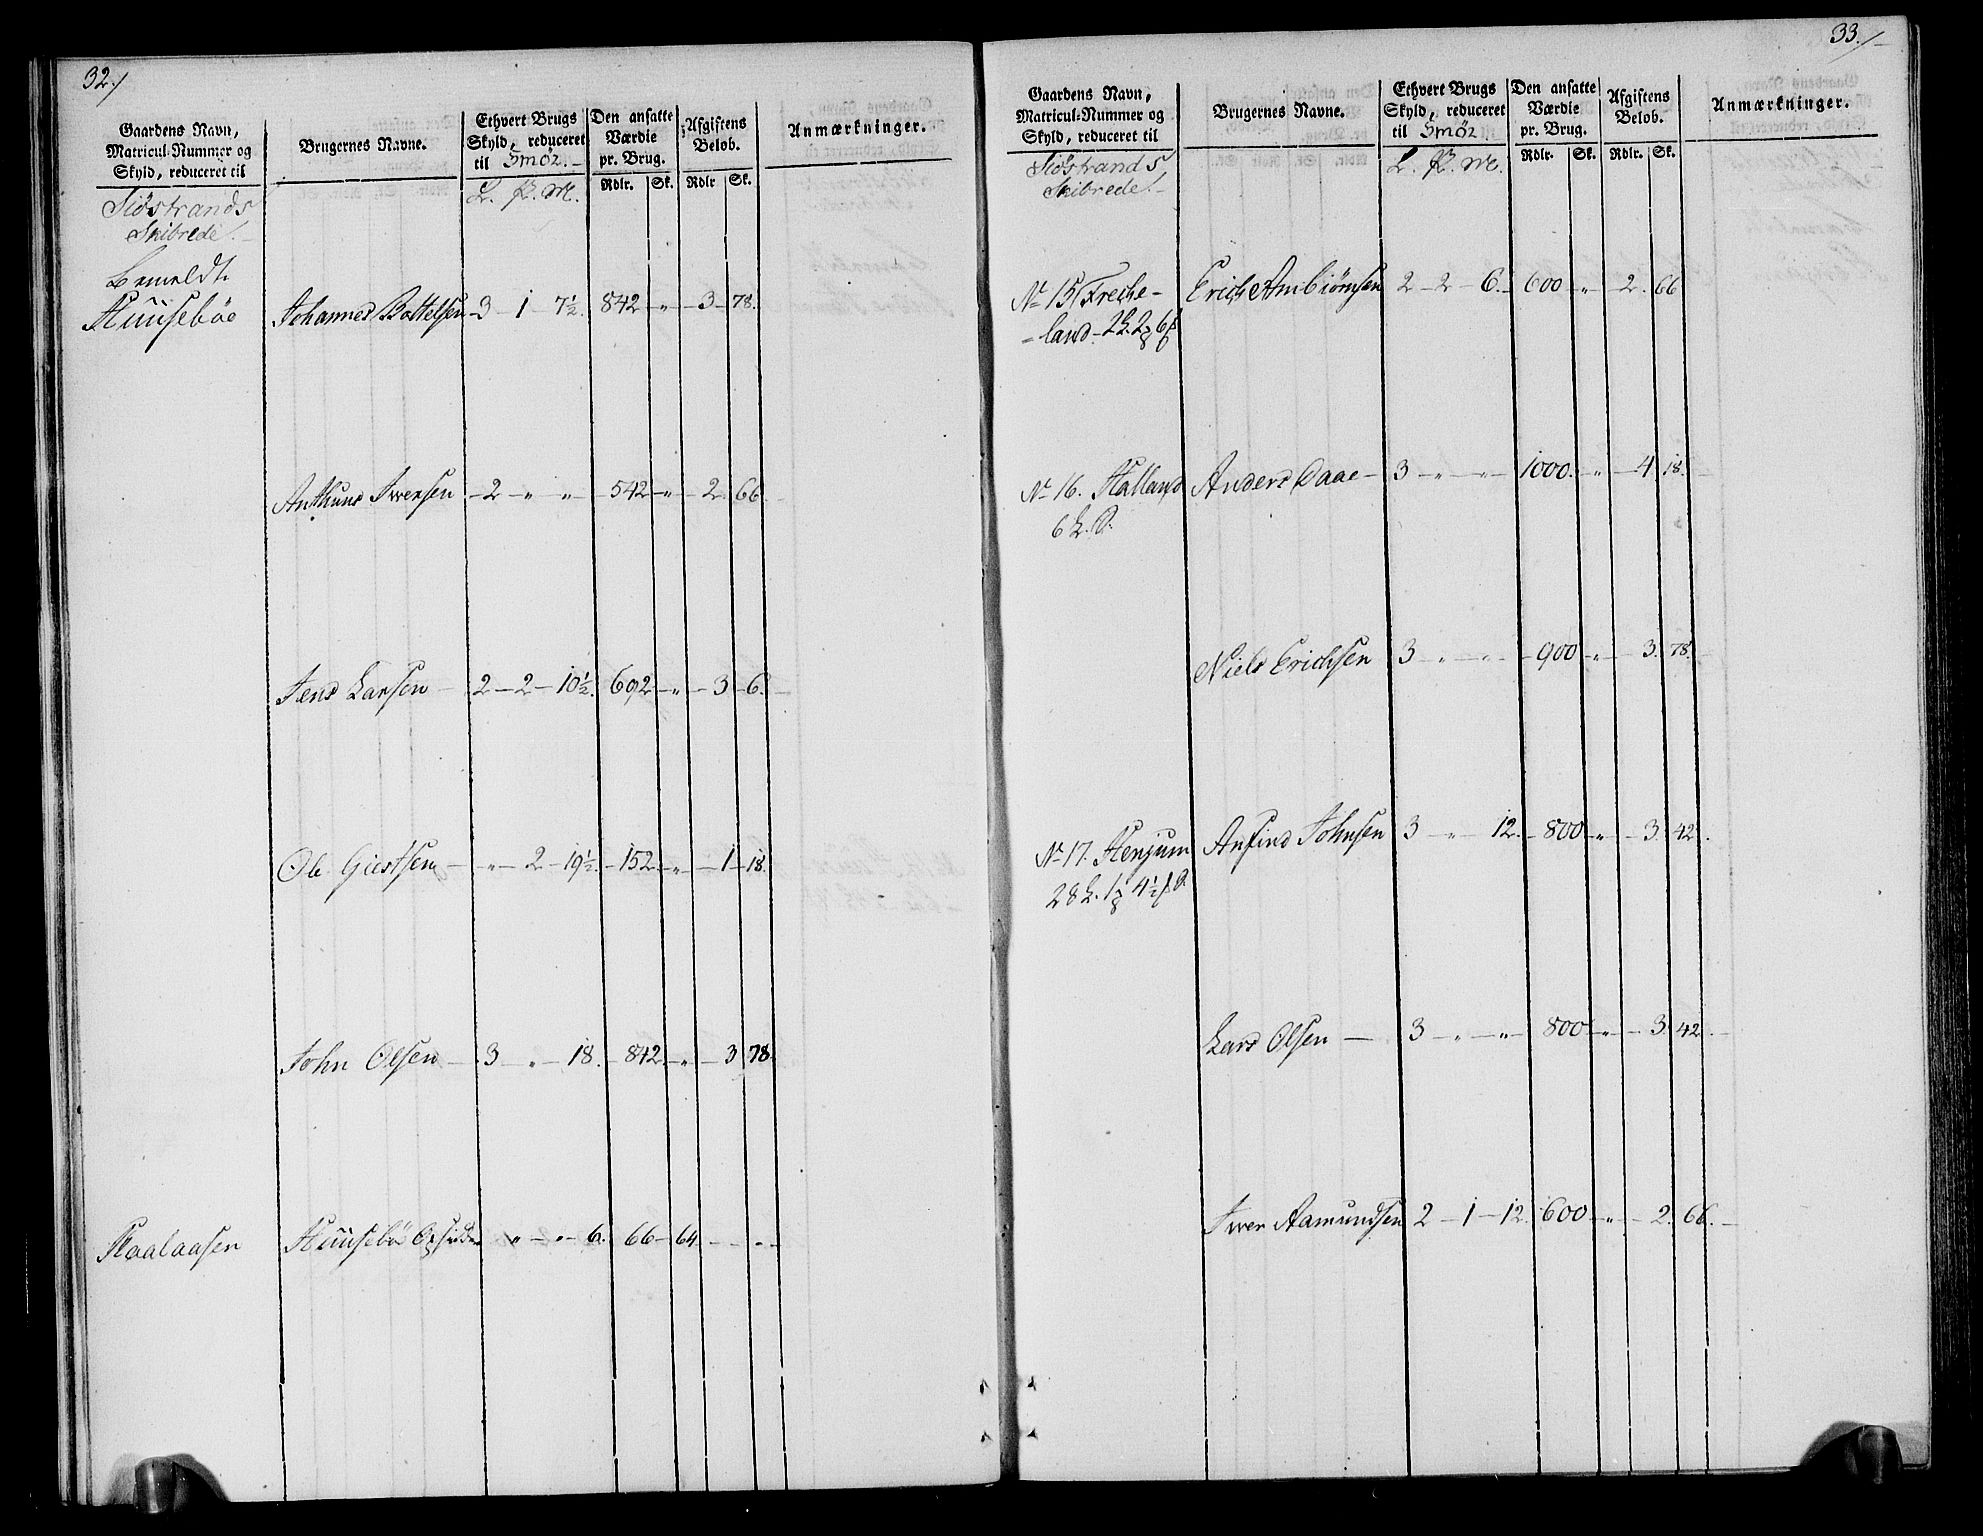 32./
Gaardens Navn,
Matricul-Nummer og
Skyld, reduceret til
Brugernes Navne.
Ethvert Brugs
Skyld, reduceret
til Smör.
Den ansatte
Værdie
pr. Brug.
Afgiftens
Beløb.
Anmærkninger.
Rdlr. Sk. Rdlr Sk.
L. ꝑ. M.
Siöstrands
Skibrede
Bemeldt
Huusebøe Johannes Bottelsen 3 1 7½. 842 " 3 78.
Anthund Iversen 2 " " 542 " 2 66.
Jens Larsen 2 2 10½. 692 " 3 6.
Ole Giertsen " 2 19½. 152 " 1 18.
John Olsen 3 " 18. 842 " 3 78.
Huusebøe Opsidder " " 6. 66 64 - -
33./
Gaardens Navn,
Matricul-Nummer og
Skyld, reduceret til
Brugernes Navne.
Ethvert Brugs
Skyld, reduceret
til Smör
Den ansatte
Værdie
pr. Brug.
Afgiftens
Beløb.
Anmærkninger.
Rdlr. Sk. Rdlr. Sk.
L. ꝑ. M.
Siöstrands
Skibrede
No 15 Freche- Erich Ambiörnsen 2 2 6. 600 " 2. 66
land
No 16. Halland Anders Daae 3 " " 1000. " 4 18.
6 L.
Niels Erichsen 3 " " 900 " 3. 78.
No 17. Henjum Anfind Johnsen 3 " 12. 800 " 3 42.
28 L.
Lars Olsen 3 " " 800 " 3. 42.
Iver Aamundsen 2 1 12. 600 " 2. 66.